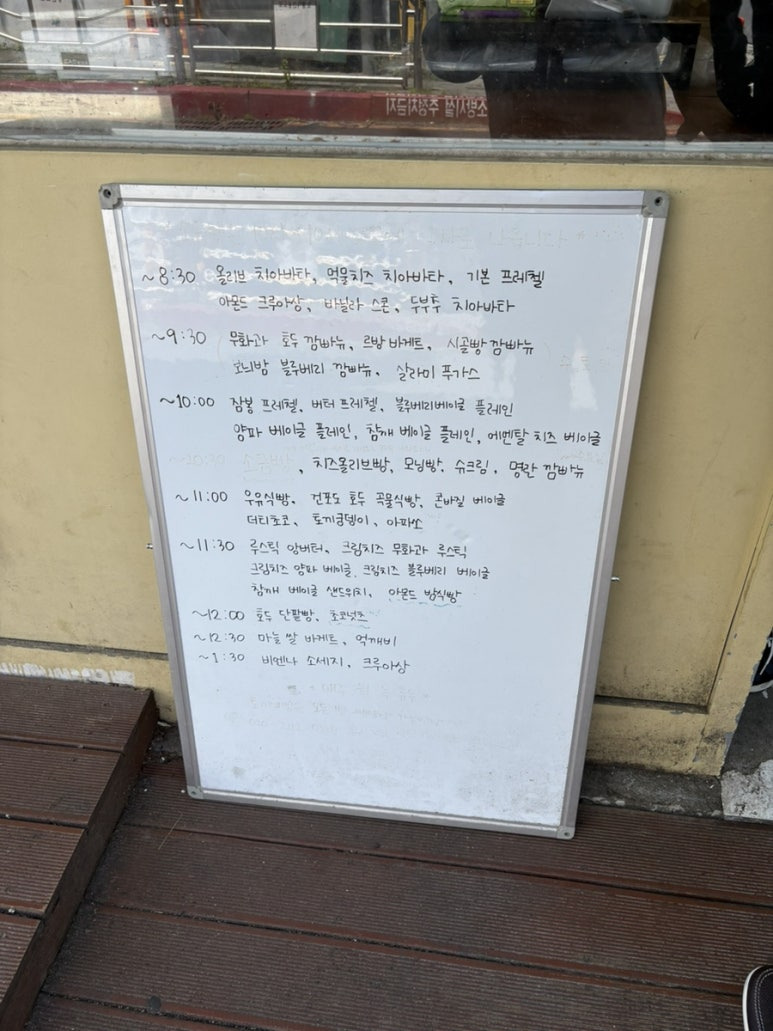 ~8:30 올리브 치아바타, 먹물치즈 치아바타, 기본 프레첼
아몬드 크루아상, 바닐라 스콘, 두부후 치아바타
~9:30 무화과 호두 깜빠뉴, 르방 바게트, 시골빵 깜빠뉴
호늬밤 블루베리 깜빠뉴, 살라미 푸가스
~10:00 잠봉 프레첼, 버터 프레첼, 블루베리베이글 플레인
양파 베이글 플레인, 참깨 베이글 플레인, 에멘탈 치즈 베이글
~10:30 소금빵, 치즈올리브빵, 모닝빵, 슈크림, 명란 깜빠뉴
~11:00 우유식빵, 건포도 호두 곡물식빵, 콘바질 베이글
더티초코, 토끼궁뎅이, 아파쏘
~11:30 루스틱 앙버터, 크림치즈 무화과 루스틱
크림치즈 양파 베이글, 크림치즈 블루베리 베이글
참깨 베이글 샌드위치, 아몬드 밤식빵
~12:00 호두 단팥빵, 초코넛츠
~12:30 마늘 쌀 바게트, 억깨비
~1:30 비엔나 소세지, 크루아상